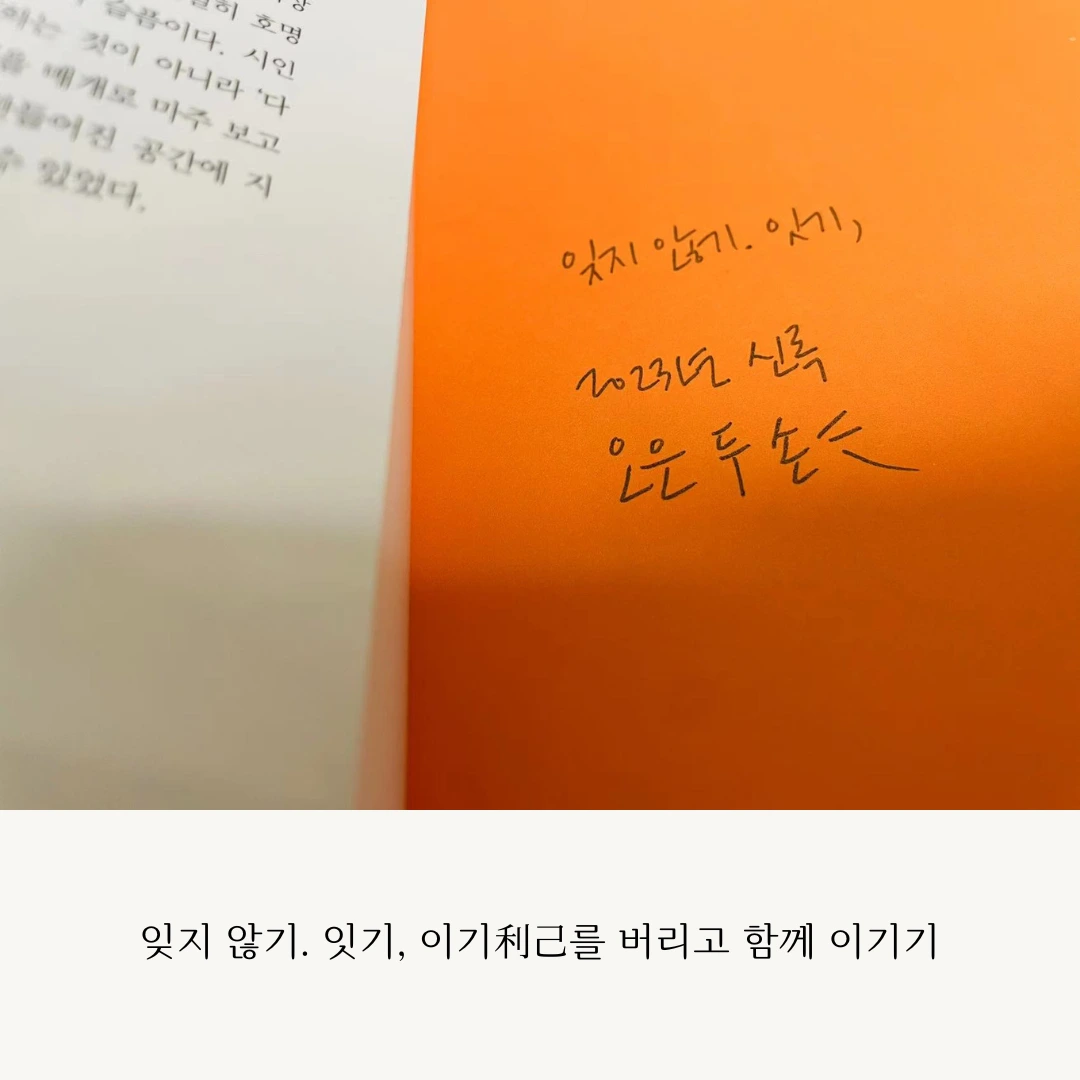 히 호명
슬픔이다. 시인
하는 것이 아니라 ‘다
을 매개로 마주 보고
만들어진 공간에 지
수 있었다.
잊지 않기. 잇기,
2023년 신록
오은 두 손
잊지 않기. 잇기, 이기利己를 버리고 함께 이기기